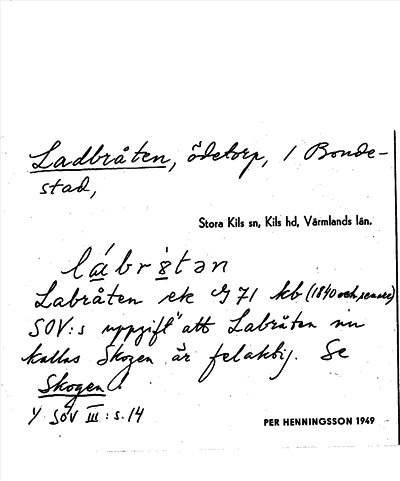 Ladbråten, ödetorp, / Bonde-
stad,
Stora Kils sn, Kils hd, Värmlands län.
lábrătən
Labråten ek G 71 kb (1840 och senare)
SOV:s uppgift att Labråten nu
kallas Skogen är felaktig. Se
Skogen.
SOV III: s. 14
PER HENNINGSSON 1949